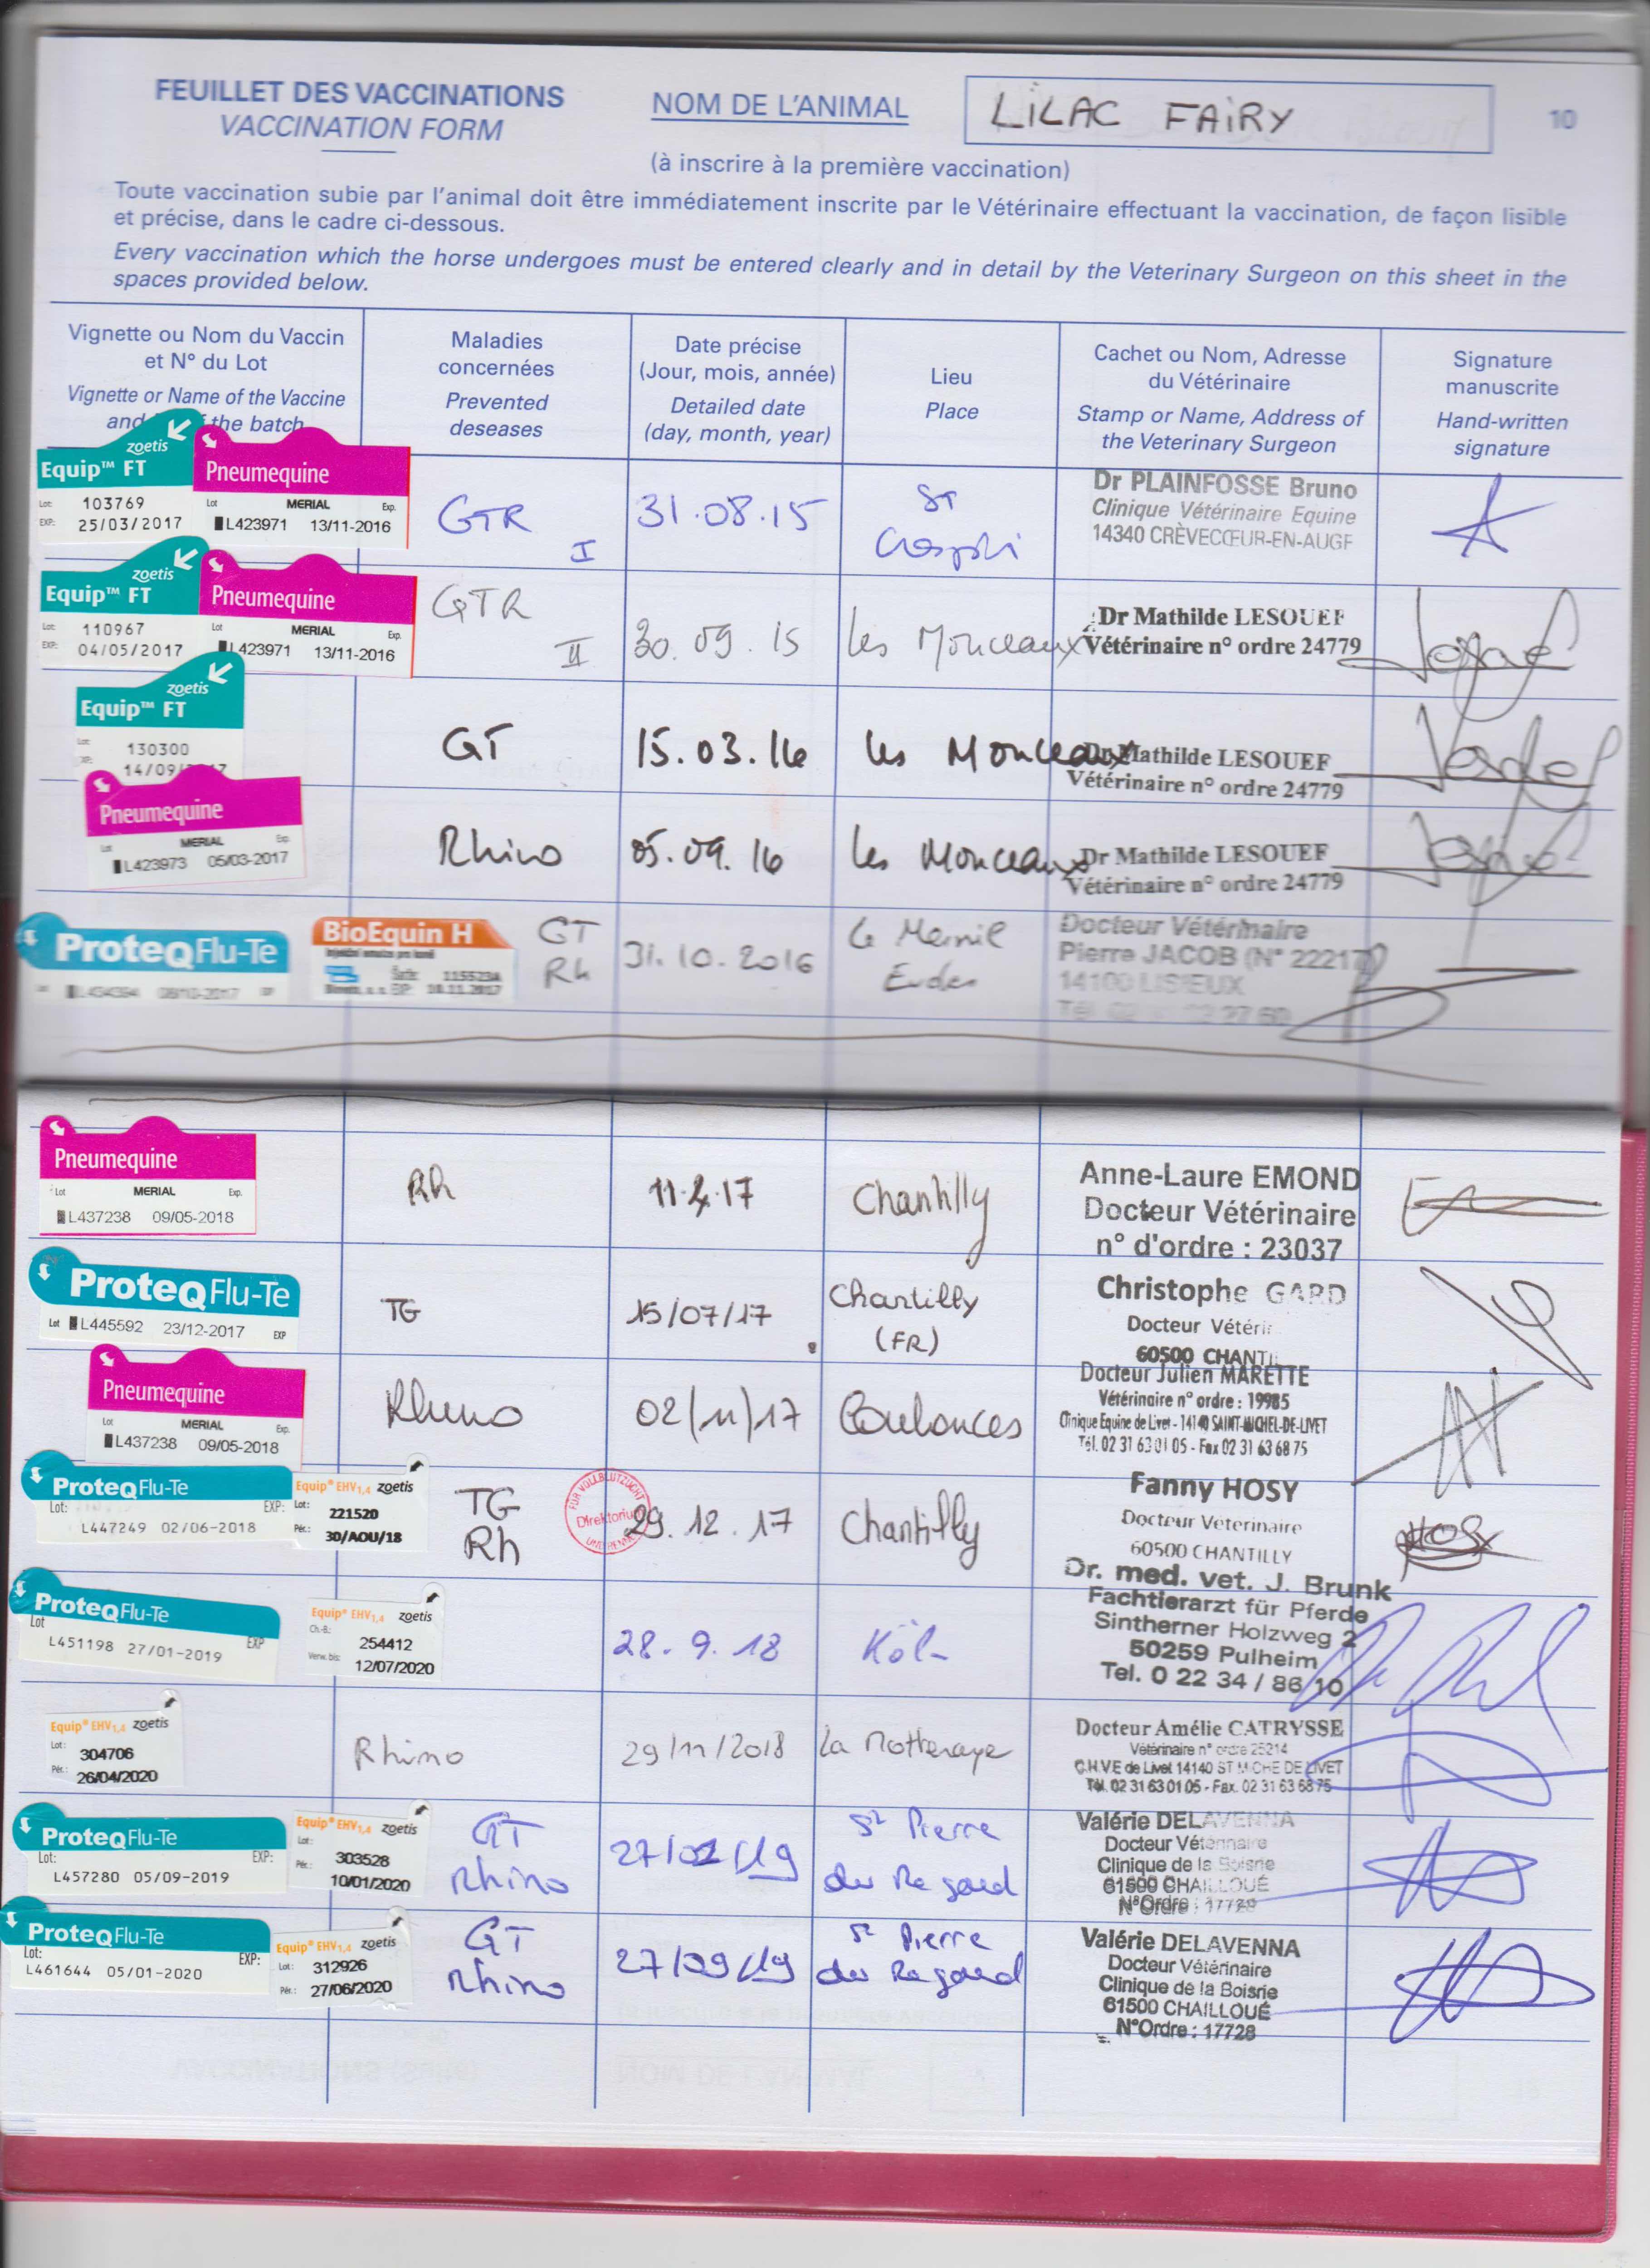 FEUILLET DES VACCINATIONS
VACCINATION FORM
NOM DE L'ANIMAL
LILAC FAIRY
10
(à inscrire à la première vaccination)
Toute vaccination subie par l'animal doit être immédiatement inscrite par le Vétérinaire effectuant la vaccination, de façon lisible
et précise, dans le cadre ci-dessous.
Every vaccination which the horse undergoes must be entered clearly and in detail by the Veterinary Surgeon on this sheet in the
spaces provided below.
Vignette ou Nom du Vaccin
et N° du Lot
Vignette or Name of the Vaccine
and the batch
Maladies
concernées
Prevented
deseases
Date précise
(Jour, mois, année)
Detailed date
(day, month, year)
Lieu
Place
Cachet ou Nom, Adresse
du Vétérinaire
Stamp or Name, Address of
the Veterinary Surgeon
Signature
manuscrite
Hand-written
signature
zoetis
Equip™ FT
Lot: 103769
EXP: 25/03/2017
Pneumequine
Lot MERIAL Exp.
L423971 13/11-2016
GTR
I
31.08.15
ST
Dr PLAINFOSSE Bruno
Clinique Vétérinaire Equine
14340 CRÈVECŒUR-EN-AUGE
zoetis
Equip™ FT
Lot: 110967
EXP: 04/05/2017
Pneumequine
Lot MERIAL Exp.
L423971 13/11-2016
GTR
II
30.09.15
Les Monceaux
Dr Mathilde LESOUEF
Vétérinaire n° ordre 24779
zoetis
Equip™ FT
130300
14/09/
GT
15.03.16
Les Monceaux
Dr Mathilde LESOUEF
Vétérinaire n° ordre 24779
Pneumequine
Lot MERIAL Exp
L423973 05/03-2017
Rhino
05.09.16
Les Monceaux
Dr Mathilde LESOUEF
Vétérinaire n° ordre 24779
ProteqFlu-Te
BioEquin H
115523A
GT
Rh
31.10.2016
Le Mesnil
Eudes
Docteur Vétérinaire
Pierre JACOB (N° 22217)
14100 LISIEUX
Pneumequine
Lot MERIAL Exp.
L437238 09/05-2018
Rh
11.4.17
Chantilly
Anne-Laure EMOND
Docteur Vétérinaire
n° d'ordre : 23037
ProteqFlu-Te
Lot L445592 23/12-2017 EXP
TG
15/07/17
Chantilly
(FR)
Christophe GARD
Docteur Vétérin
60500 CHANTI
Pneumequine
Lot MERIAL Exp.
L437238 09/05-2018
Rhino
02/11/17
Coulonces
Docteur Julien MARETTE
Vétérinaire n° ordre : 19985
Clinique Equine de Livet - 14140 SAINT-MICHEL-DE-LIVET
Tél. 02 31 63 01 05 - Fax 02 31 63 68 75
ProteqFlu-Te
Lot: EXP:
L447249 02/06-2018
Equip® EHV1,4 zoetis
Lot: 221520
Pér.: 30/AOU/18
TG
Rh
FÜR VOLLBLUTZUCHT
Direktorium
UND RENNEN
29.12.17
Chantilly
Fanny HOSY
Docteur Veterinaire
60500 CHANTILLY
ProteqFlu-Te
Lot EXP
L451198 27/01-2019
Equip® EHV1,4 zoetis
Ch.-B.: 254412
Verw. bis: 12/07/2020
28.9.18
Köl
Dr. med. vet. J. Brunk
Fachtierarzt für Pferde
Sintherner Holzweg 2
50259 Pulheim
Tel. 0 22 34 / 86 10
Equip® EHV1,4 zoetis
Lot: 304706
Pér.: 26/04/2020
Rhino
29/11/2018
La Motteraye
Docteur Amélie CATRYSSE
Vétérinaire n° ordre 25214
C.H.V.E de Livet 14140 ST MICHE DE LIVET
Tél. 02 31 63 01 05 - Fax. 02 31 63 68 75
ProteqFlu-Te
Lot: EXP:
L457280 05/09-2019
Equip® EHV1,4 zoetis
Lot: 303528
Pér.: 10/01/2020
GT
Rhino
27/02/19
St Pierre
du Regard
Valérie DELAVENNA
Docteur Vétérinaire
Clinique de la Boisrie
61500 CHAILLOUÉ
N°Ordre : 17728
ProteqFlu-Te
Lot: EXP:
L461644 05/01-2020
Equip® EHV1,4 zoetis
Lot: 312926
Pér.: 27/06/2020
GT
Rhino
27/09/19
St Pierre
du Regard
Valérie DELAVENNA
Docteur Vétérinaire
Clinique de la Boisrie
61500 CHAILLOUÉ
N°Ordre : 17728